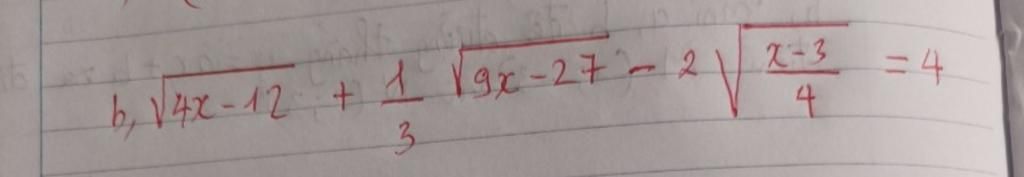 b, √(4x-12) + 1/3 √(9x-27) - 2 √((x-3)/4) = 4